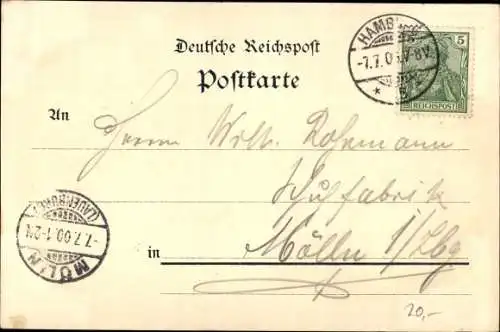 Deutsche Reichspost
Postkarte
HAMBURG
-7.7.00.7-8V.
* 8
5
REICHSPOST
An
Herrn Wilh. Rohmann
in Mölln i/Lbg
MÖLLN
-7.7.00.1-2N.
(LAUENBURG)
20,-